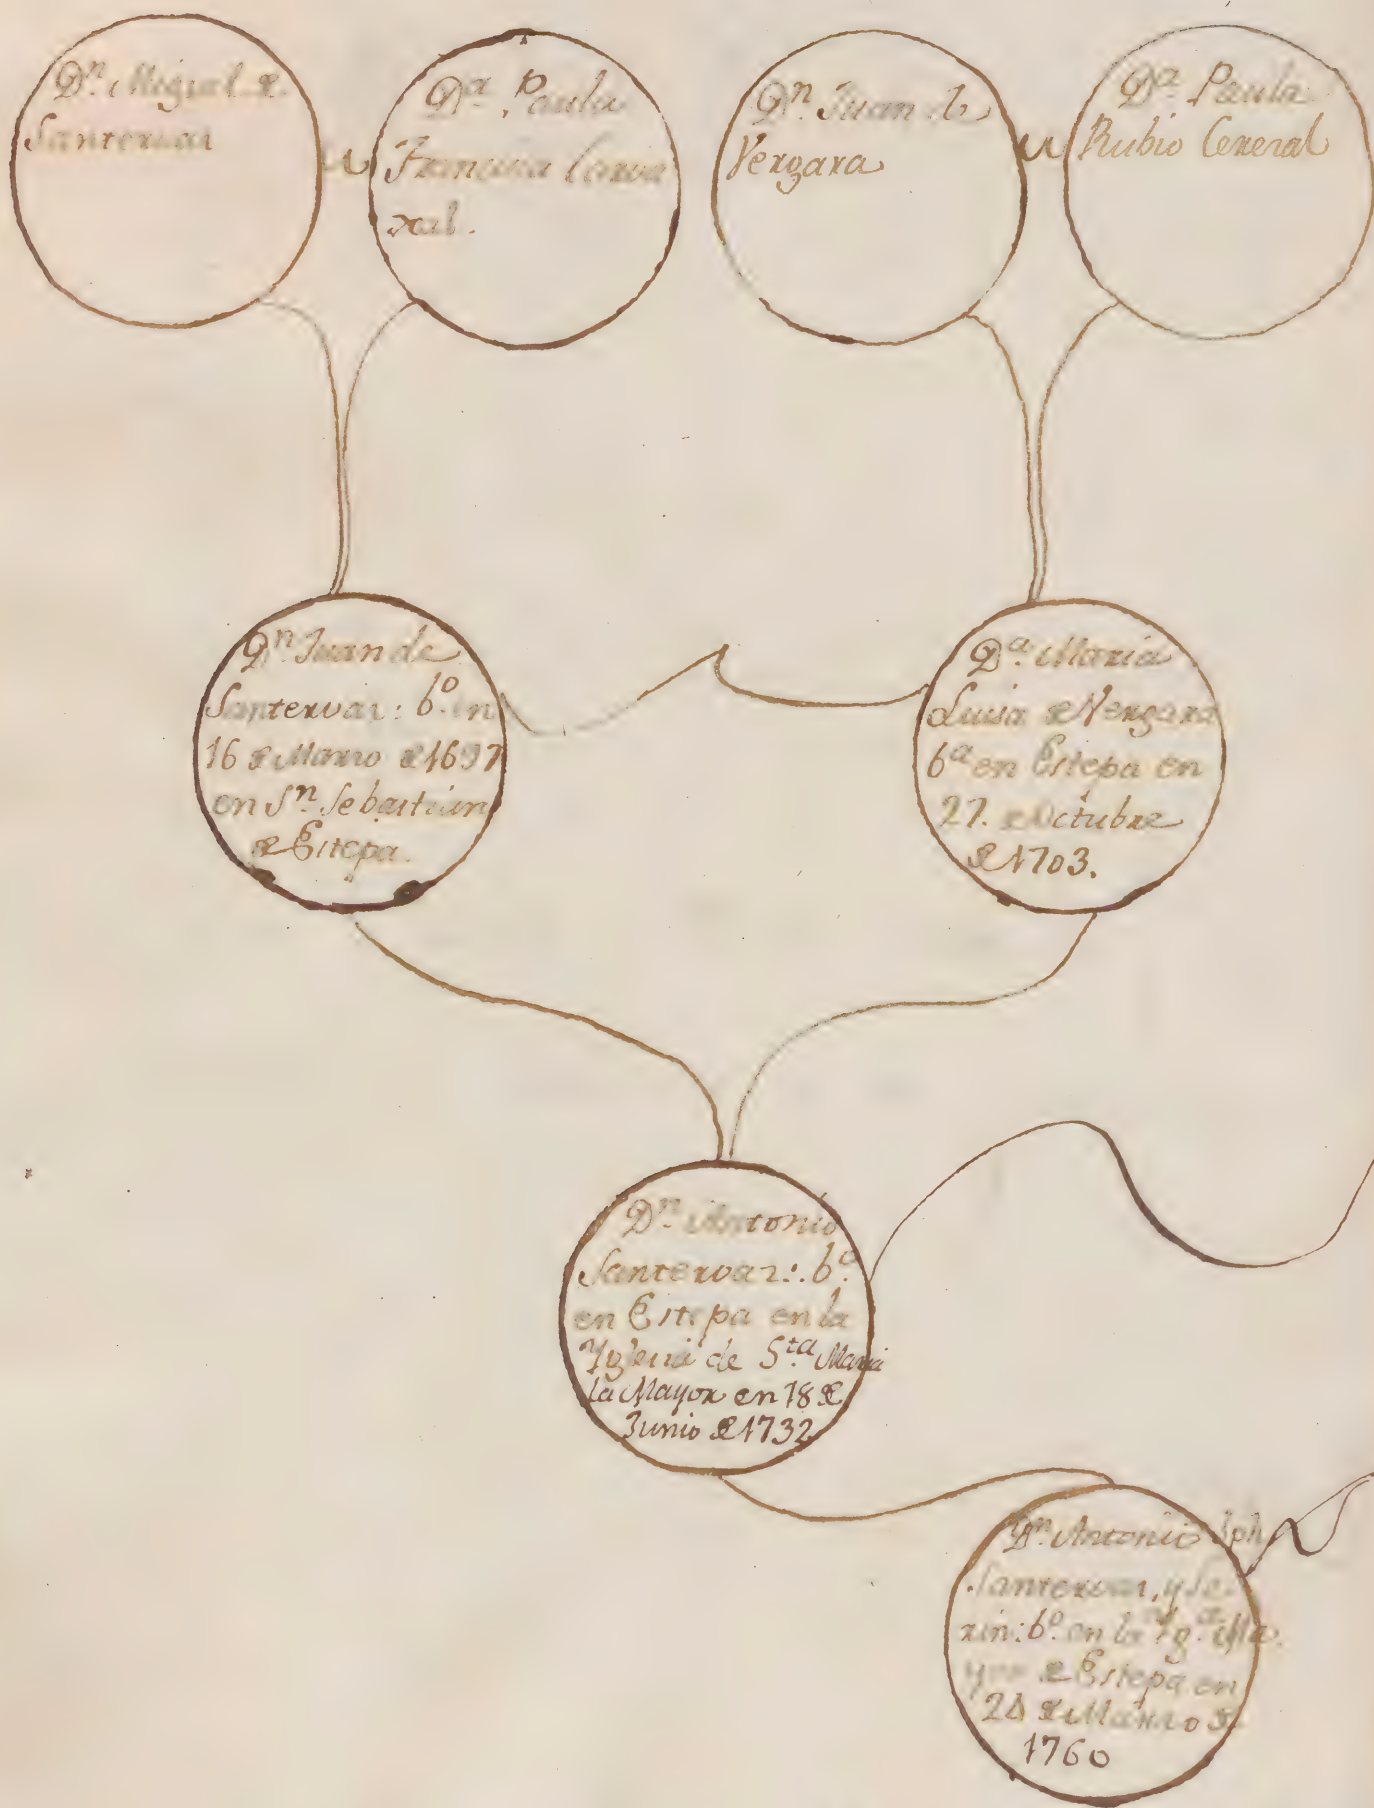 Dn. Miguel de
Santervas
Da. Paula
Francisca Carva
xal.
Dn. Juan de
Vergara
Da. Paula
Rubio General
Dn. Juan de
Santervas: bo. en
16 de Marzo de 1697
en Sn. Sebastian
de Estepa.
Da. Maria
Luisa de Vergara
ba en Estepa en
27. de Octubre
de 1703.
Dn. Antonio
Santervas: bo.
en Estepa en la
Yglesia de Sta. Maria
la Mayor en 18 de
Junio de 1732
Dn. Antonio Jph
Santervas, y Se-
rin: bo. en la Yga. Ma
yor de Estepa en
de Marzo de
1760